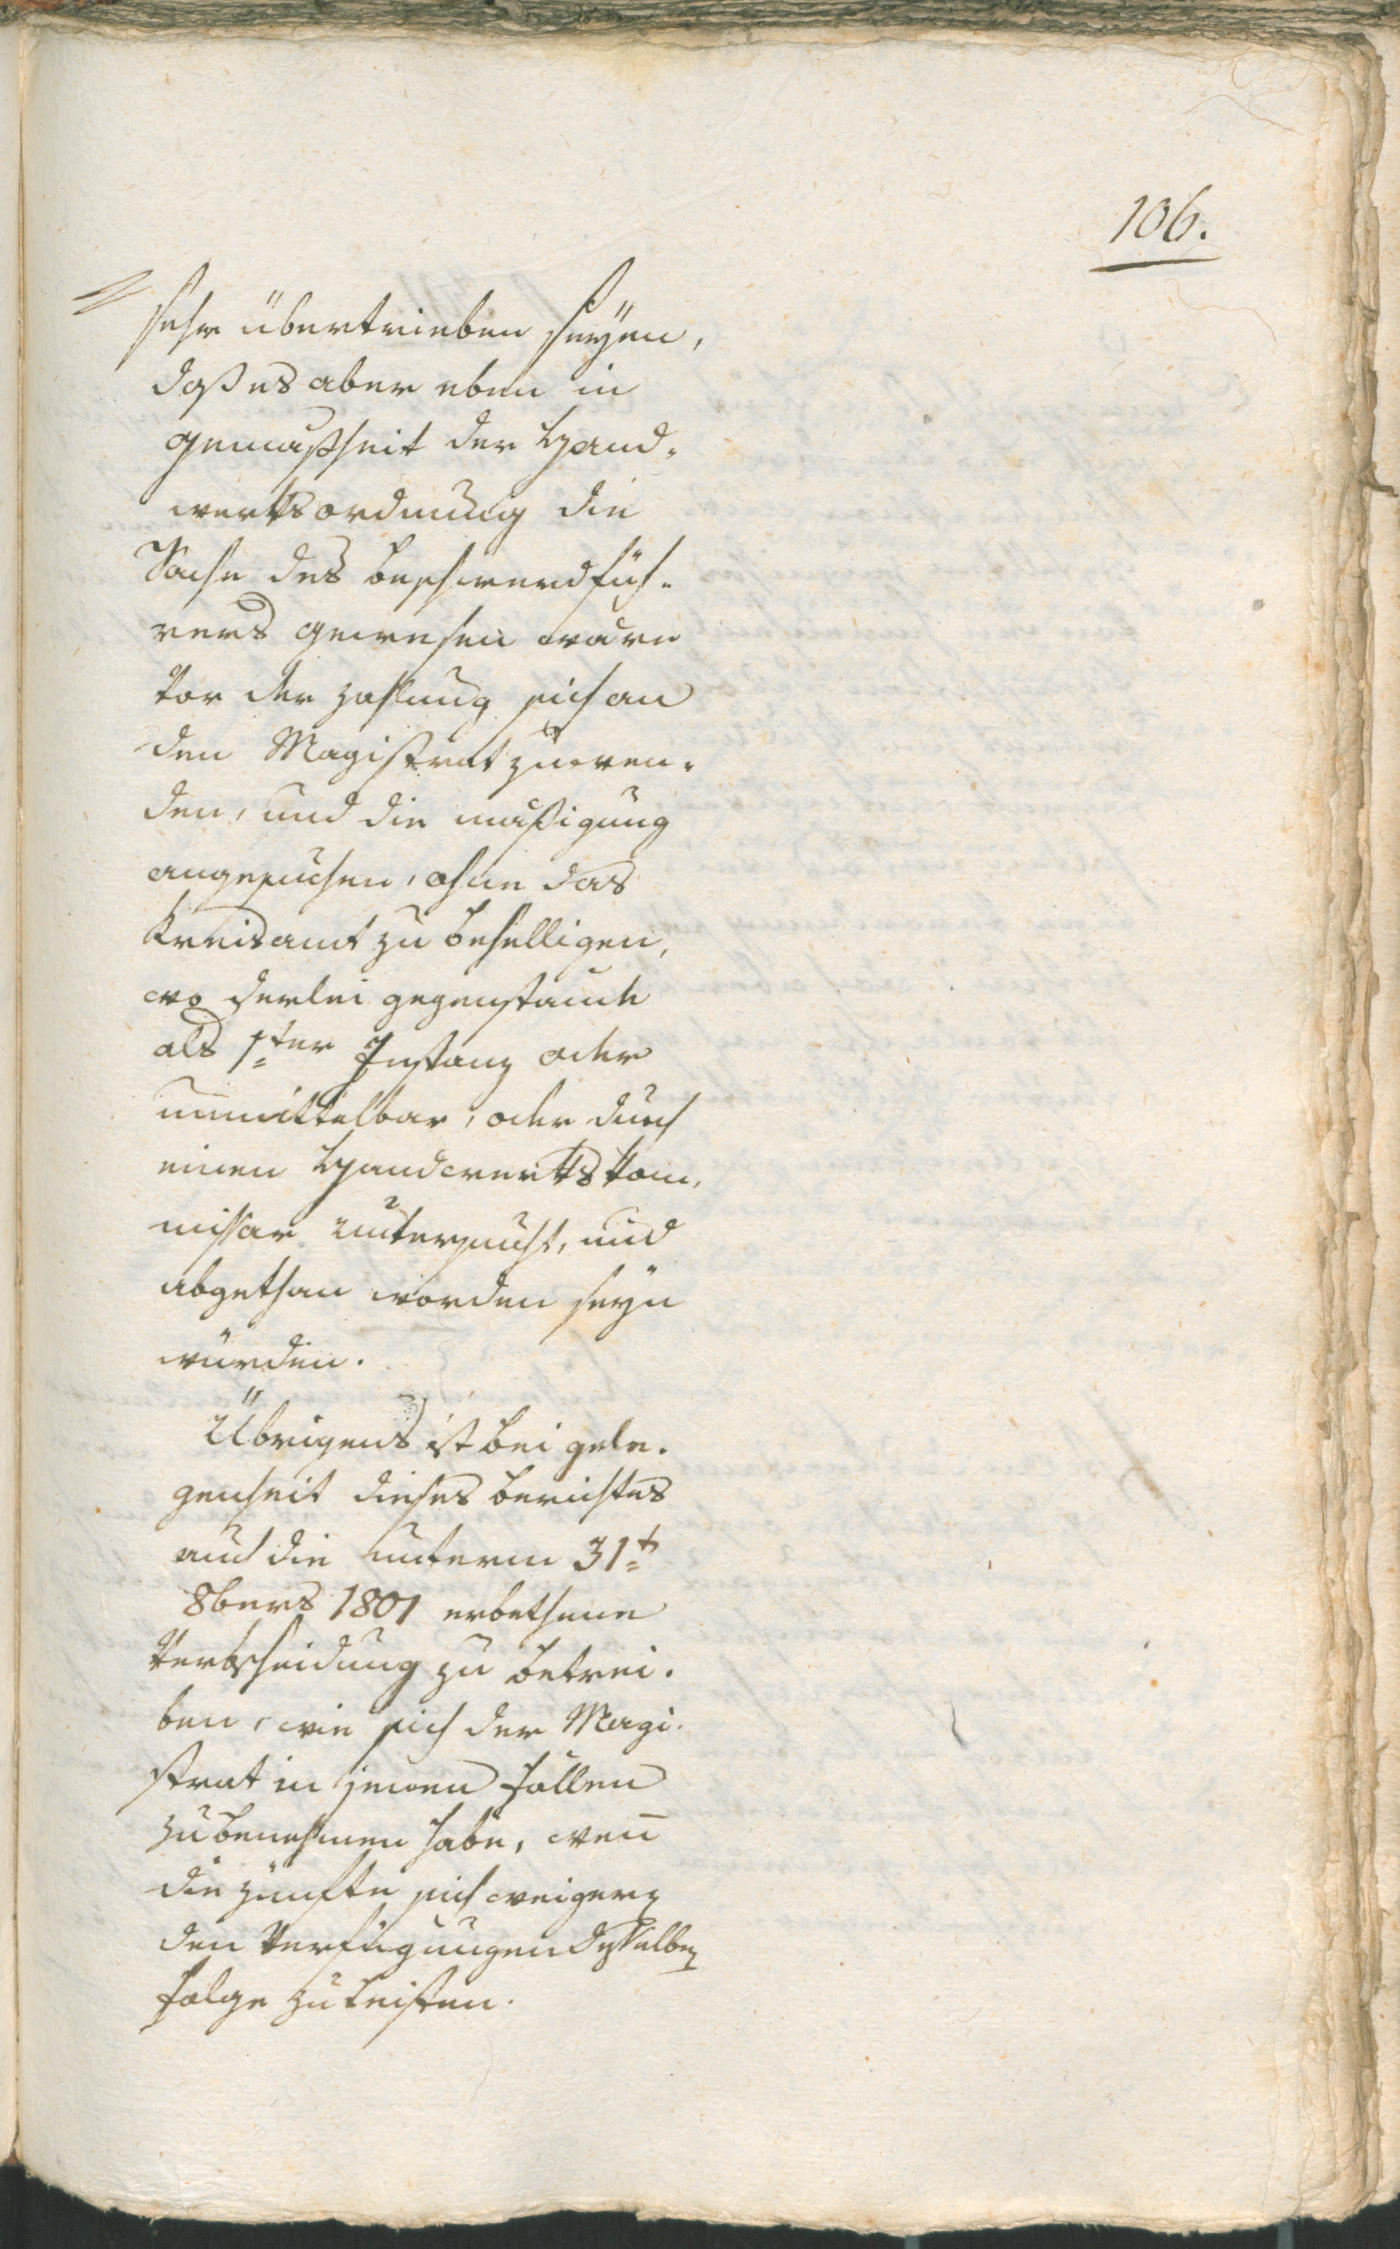 106.
sehr übertrieben seÿen,
daß es aber eben in
gemaßheit der Hand-
werksordnung die
Sache des beschwerdfüh-
rers gewesen wäre
vor der Zahlung sich an
den Magistrat zu wen-
den, und die mäßigung
angesuchen, ohne das
Kreisamt zu behelligen,
wo derlei gegenstände
als 1ter Instanz oder
unmittelbar, oder durch
einen Handwerkskom-
missar untersucht, und
abgethan worden seÿn
würden.
Übrigens ist bei gele-
genheit dieses berichtes
auch die unterm 31t
8bers 1801 erbethene
Verbscheidung zu betrei-
ben, wie sich der Magi-
strat in jenen Fällen
zu benehmen habe, wen̄
die Zünfte sich weigern
den Verfügungen desselben
Folge zu leisten.